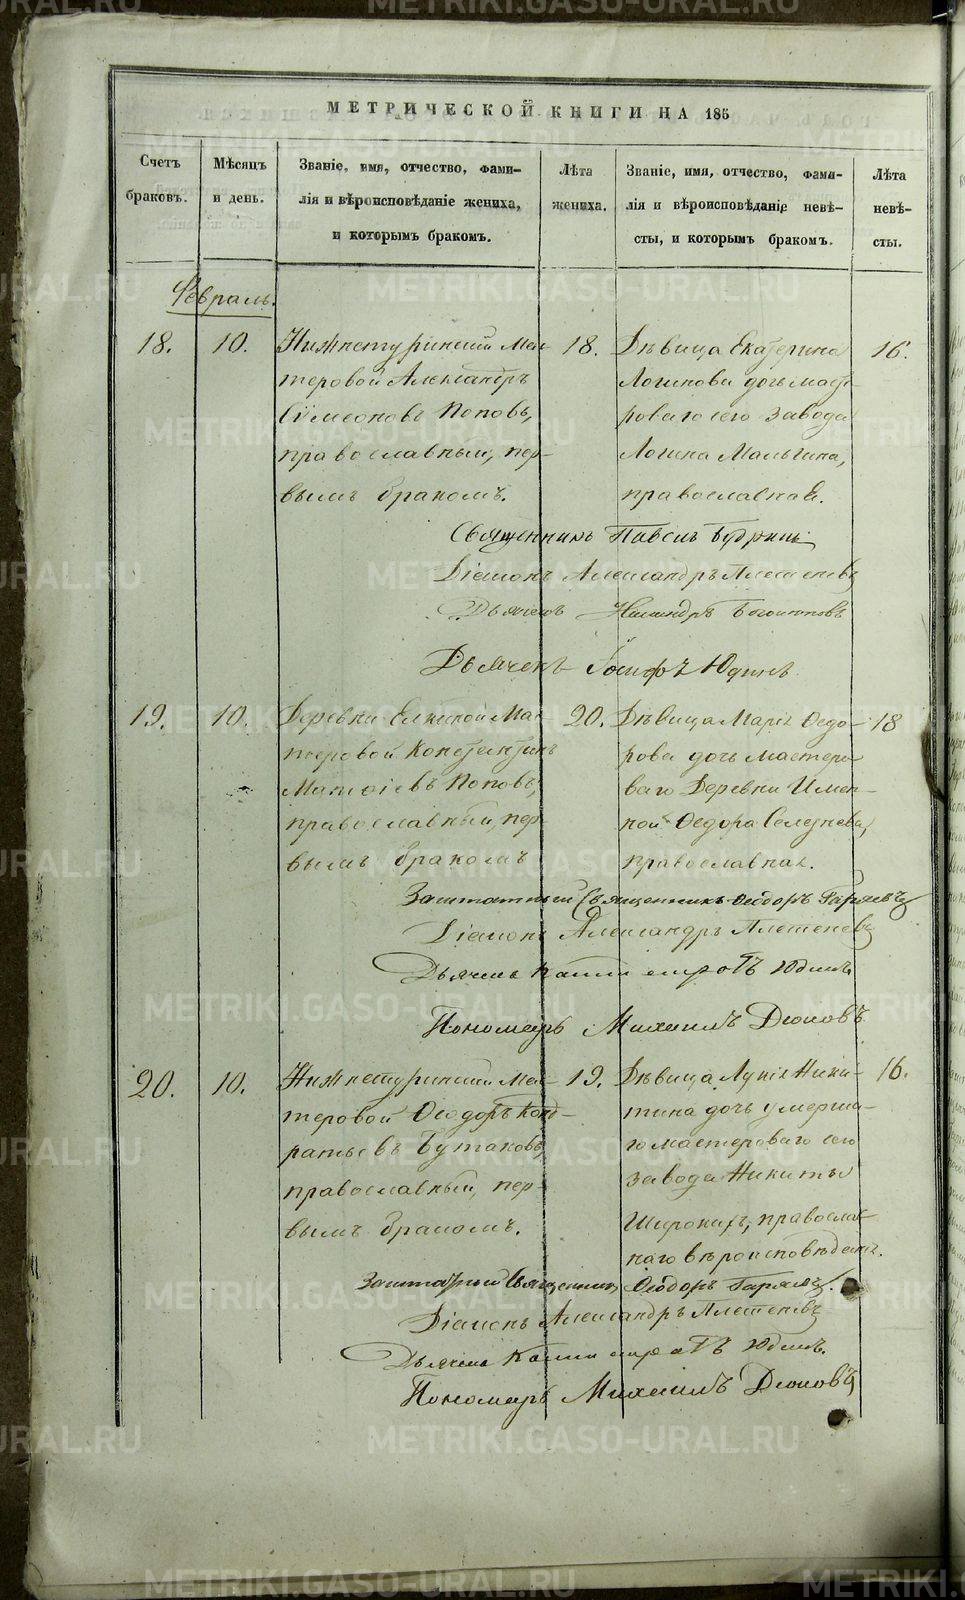 МЕТРИЧЕСКОЙ КНИГИ НА 185
Счетъ браковъ.
Мѣсяцъ и день.
Званіе, имя, отчество, фами-
лія и вѣроисповѣданіе жениха,
и которымъ бракомъ.
Лѣта жениха.
Званіе, имя, отчество, фами-
лія и вѣроисповѣданіе невѣ-
сты, и которымъ бракомъ.
Лѣта невѣ-
сты.
Февраль.
18.
10.
Нижнетуринскій Мас-
теровой Александръ
Сімеоновъ Поповъ,
православный, пер-
вымъ бракомъ.
18.
Дѣвица Екатерина
Логинова дочь масте-
роваго сего завода
Логина Малыгина,
православная.
16.
Священникъ Павелъ Будринъ
Діаконъ Александръ Плетеневъ
Дьячекъ
Дьячекъ Іосифъ Юдинъ
19.
10.
Деревни Елкиной Мас-
теровой Константинъ
Матѳіевъ Поповъ,
православный, пер-
вымъ бракомъ
20.
Дѣвица Марія Ѳедо-
рова дочь мастеро-
ваго Деревни Имен-
ной Ѳедора Селезнева,
православная.
18
Заштатный Священникъ Ѳеодоръ Гаряевъ
Діаконъ Александръ Плетеневъ
Дьячекъ Юдинъ
Пономарь Михаилъ Дюковъ
20.
10.
Нижнетуринскій Мас-
теровой Ѳеодоръ Конд-
ратьевъ Бутаковъ,
православный, пер-
вымъ бракомъ.
19.
Дѣвица Лукія Ники-
тина дочь умерша-
го мастероваго сего
завода Никиты
Широкихъ, православ-
наго вѣроисповѣданія.
16.
Заштатный Священникъ Ѳеодоръ Гаряевъ.
Діаконъ Александръ Плетеневъ
Дьячекъ Юдинъ.
Пономарь Михаилъ Дюковъ
METRIKI.GASO-URAL.RU